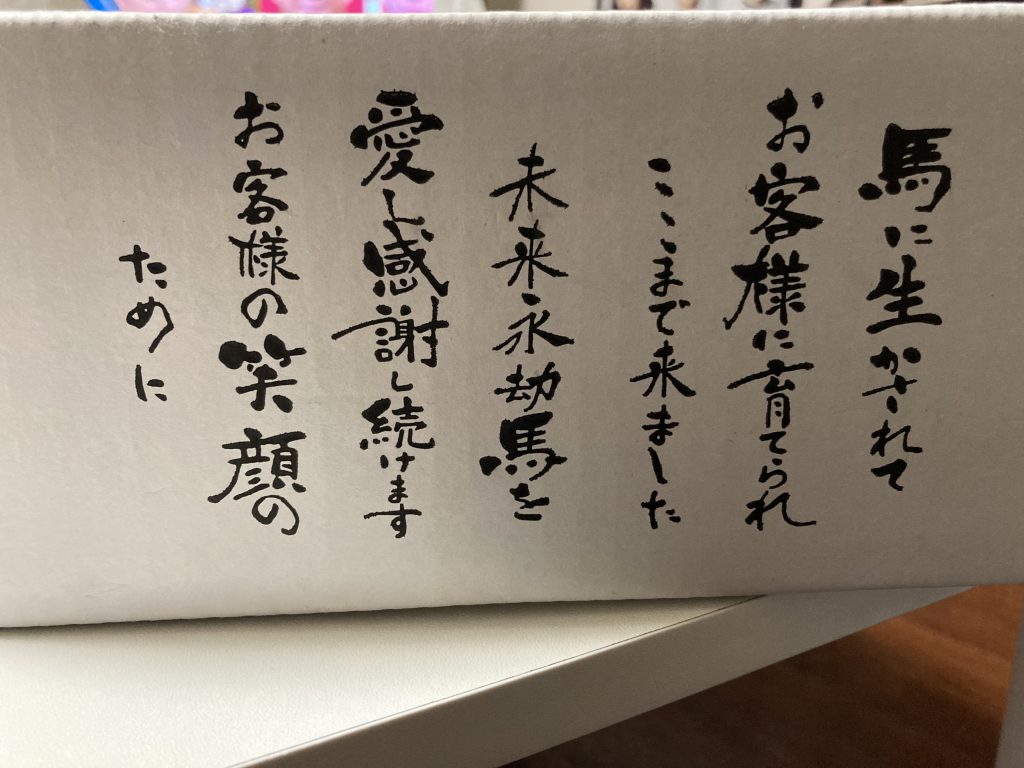 馬に生かされて
お客様に育てられ
ここまで来ました
未来永劫馬を
愛し感謝し続けます
お客様の笑顔の
ために